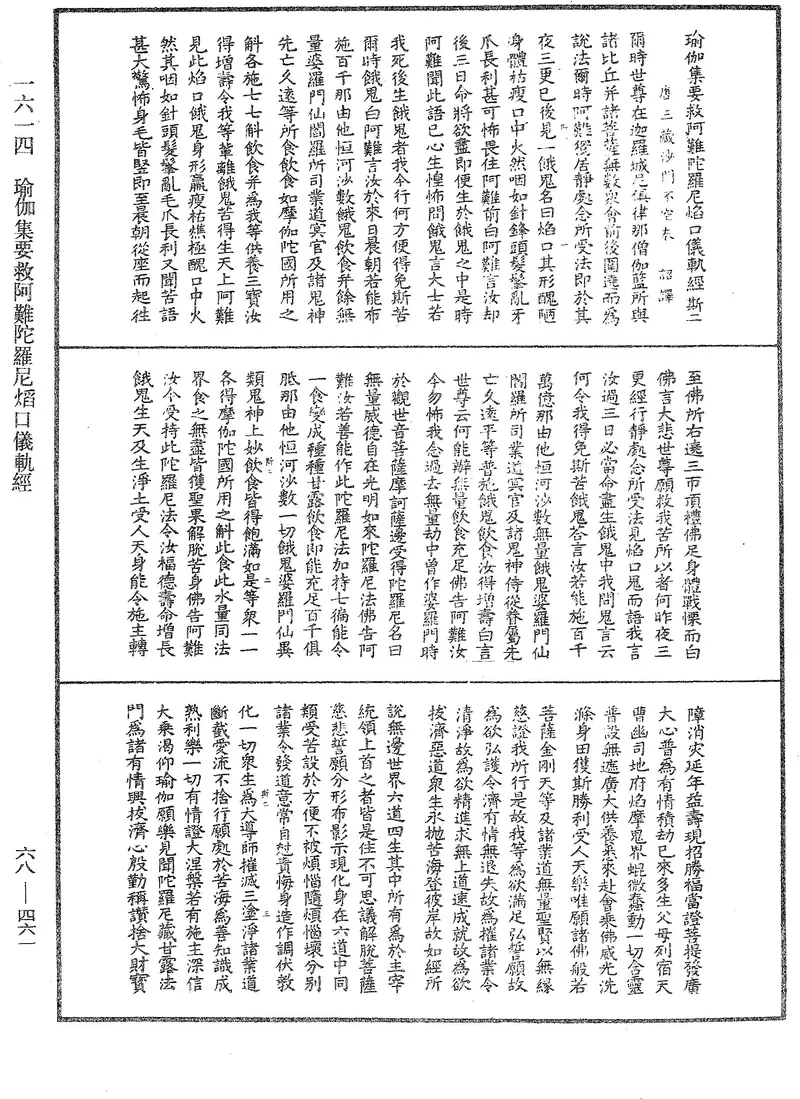 瑜伽集要救阿難陀羅尼焰口儀軌經 斯二
唐三藏沙門不空奉 詔譯
爾時世尊在迦羅城尼俱律那僧伽藍所與
諸比丘并諸菩薩無數衆會前後圍遶而為
說法爾時阿難獨居靜處念所受法即於其
夜三更已後見一餓鬼名曰焰口其形醜陋
身體枯瘦口中火然咽如針鋒頭髮鬔亂牙
爪長利甚可怖畏住阿難前白阿難言汝却
後三日命將欲盡即便生於餓鬼之中是時
阿難聞此語已心生惶怖問餓鬼言大士若
我死後生餓鬼者我今行何方便得免斯苦
爾時餓鬼白阿難言汝於來日晨朝若能布
施百千那由他恒河沙數餓鬼飲食并餘無
量婆羅門仙閻羅所司業道冥官及諸鬼神
先亡久遠等所食飲食如摩伽陀國所用之
斛各施七七斛飲食并為我等供養三寶汝
得增壽令我等輩離餓鬼苦得生天上阿難
見此焰口餓鬼身形羸瘦枯燋極醜口中火
然其咽如針頭髮鬔亂毛爪長利又聞苦語
甚大驚怖身毛皆豎即至晨朝從座而起往
至佛所右遶三帀頂禮佛足身體戰慄而白
佛言大悲世尊願救我苦所以者何昨夜三
更經行靜處念所受法見焰口鬼而語我言
汝過三日必當命盡生餓鬼中我問鬼言云
何令我得免斯苦餓鬼答言汝若能施百千
萬億那由他恒河沙數無量餓鬼婆羅門仙
閻羅所司業道冥官及諸鬼神侍從眷屬先
亡久遠平等普施餓鬼飲食汝得增壽白言
世尊云何能辦無量飲食充足佛告阿難汝
今勿怖我念過去無量劫中曾作婆羅門時
於觀世音菩薩摩訶薩邊受得陀羅尼名曰
無量威德自在光明如來陀羅尼法佛告阿
難汝若善能作此陀羅尼法加持七徧能令
一食變成種種甘露飲食即能充足百千俱
胝那由他恒河沙數一切餓鬼婆羅門仙異
類鬼神上妙飲食皆得飽滿如是等衆一一
各得摩伽陀國所用之斛此食此水量同法
界食之無盡皆獲聖果解脫苦身佛告阿難
汝今受持此陀羅尼法令汝福德壽命增長
餓鬼生天及生淨土受人天身能令施主轉
障消灾延年益壽現招勝福當證菩提發廣
大心普為有情積劫已來多生父母列宿天
曹幽司地府焰摩鬼界蜫微蠢動一切含靈
普設無遮廣大供養悉來赴會乘佛威光洗
滌身田獲斯勝利受人天樂唯願諸佛般若
菩薩金剛天等及諸業道無量聖賢以無緣
慈證我所行是故我等為欲滿足弘誓願故
為欲弘護令濟有情無退失故為摧諸業令
清淨故為欲精進求無上道速成就故為欲
拔濟惡道衆生永抛苦海登彼岸故如經所
說無邊世界六道四生其中所有為於主宰
統領上首之者皆是住不可思議解脫菩薩
慈悲誓願分形布影示現化身在六道中同
類受苦設於方便不被煩惱隨煩惱壞分別
諸業令發道意常自尅責悔身造作調伏教
化一切衆生為大導師摧滅三塗淨諸業道
斷截愛流不捨行願處於苦海為善知識成
熟利樂一切有情證大涅槃若有施主深信
大乘渴仰瑜伽願樂見聞陀羅尼藏甘露法
門為諸有情興拔濟心殷勤稱讚捨大財寶
一六一四 瑜伽集要救阿難陀羅尼焰口儀軌經
六八——四六一